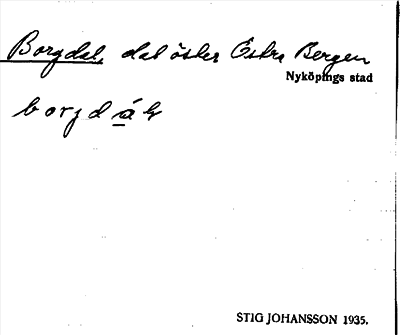 Borgdal, dal öster Östra Bergen
Nyköpings stad
borjdáḷ
STIG JOHANSSON 1935.